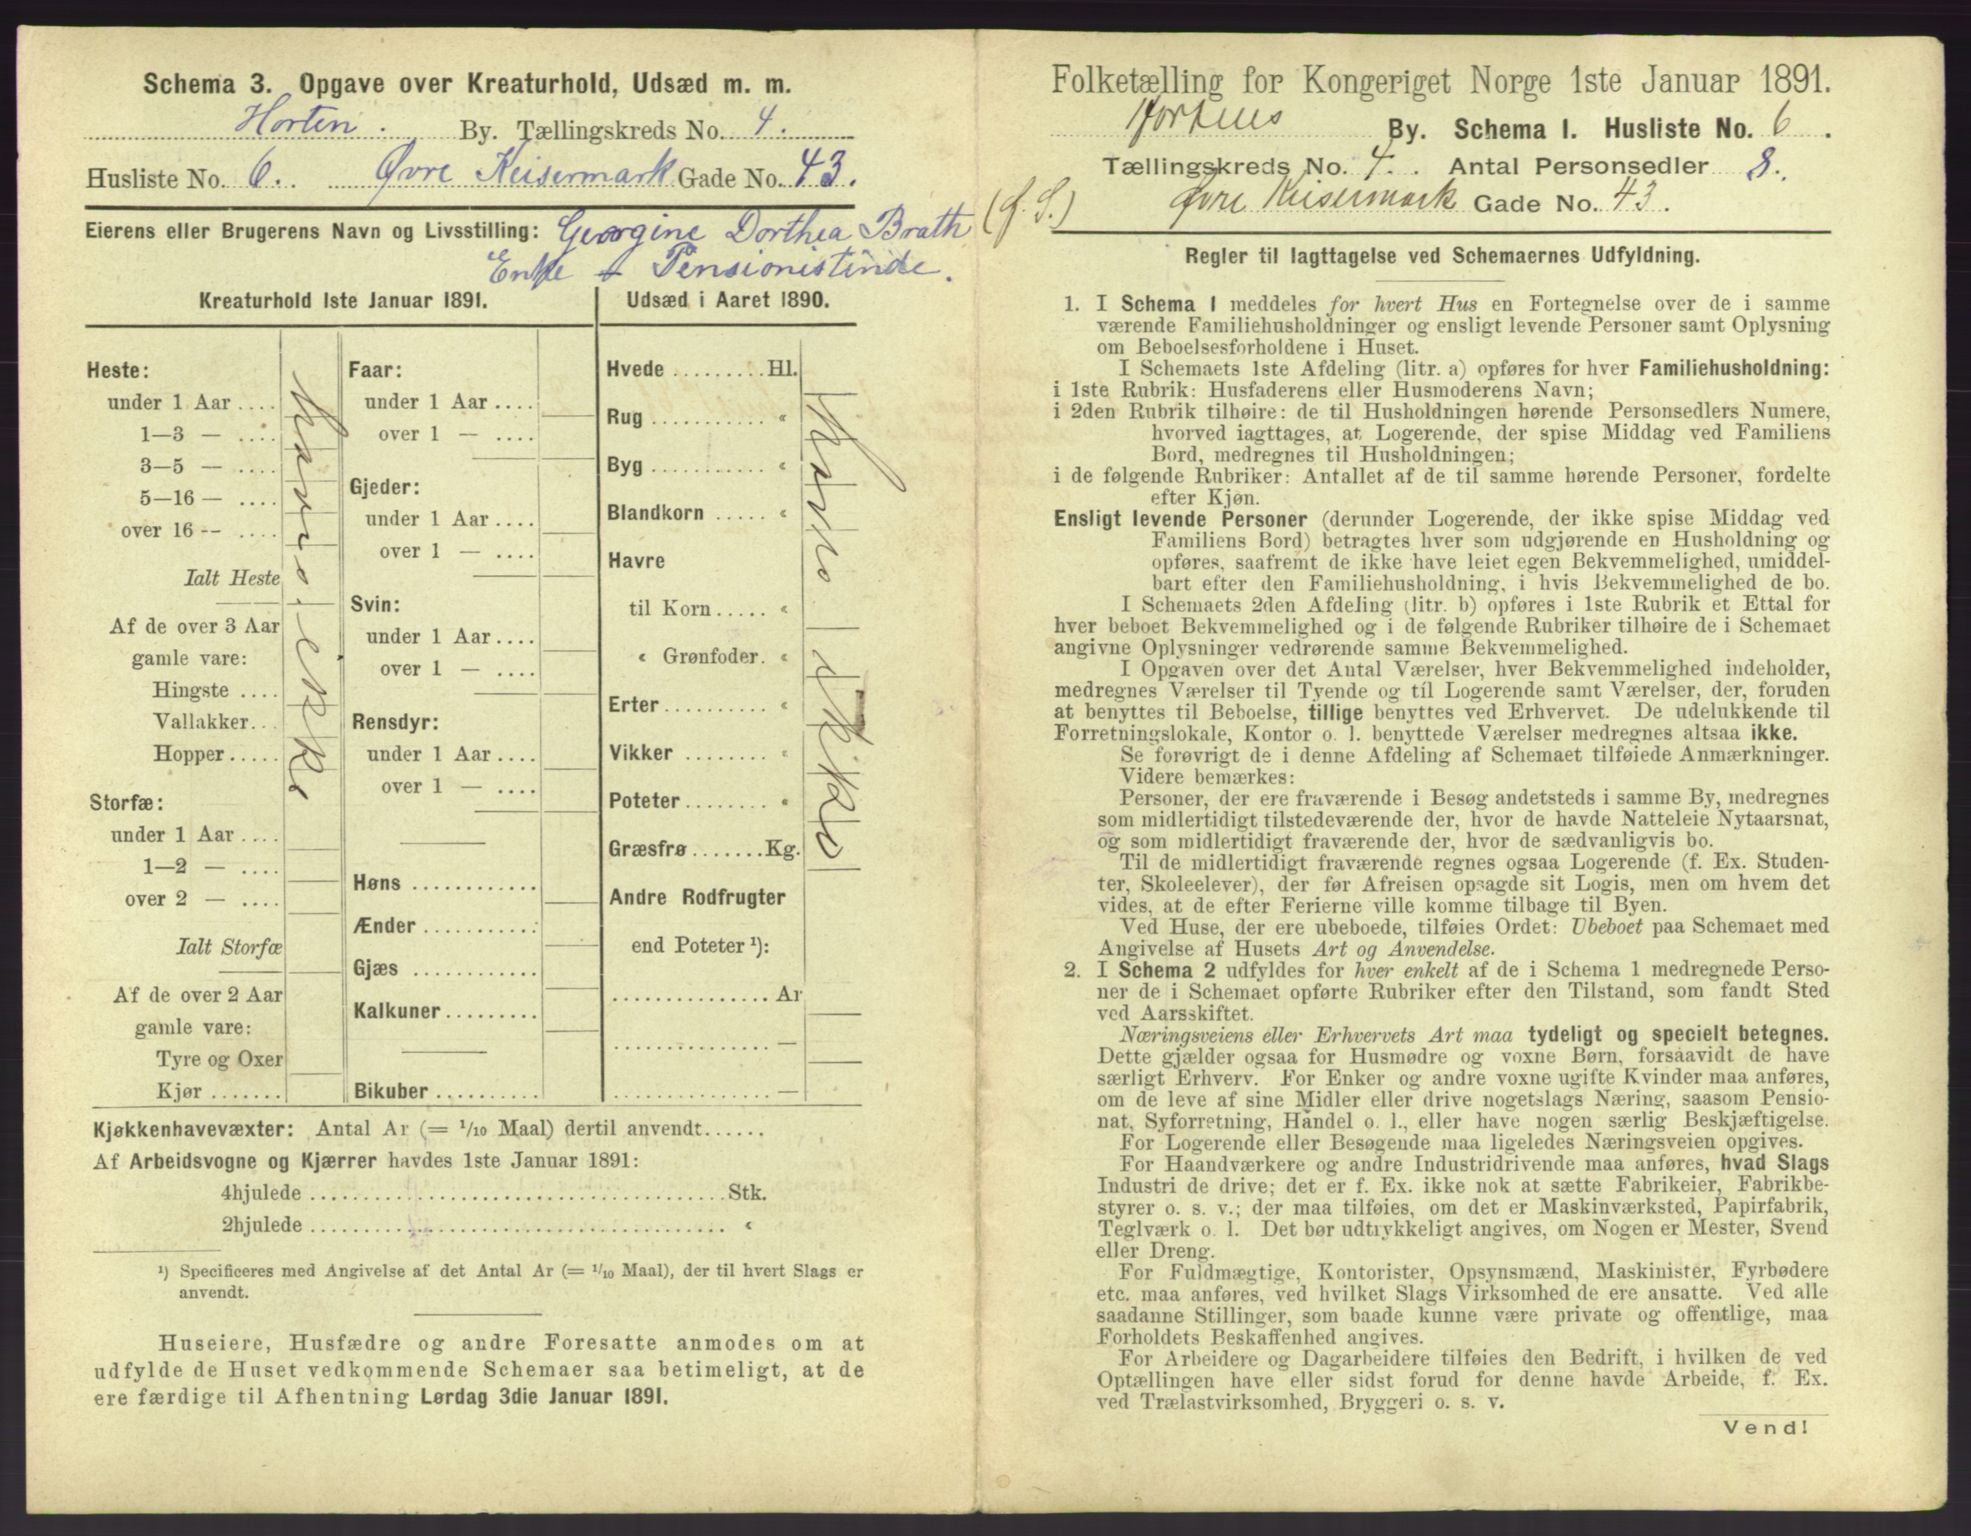 Schema 3. Opgave over Kreaturhold, Udsæd m. m.
Horten. By. Tællingskreds No. 4.
Husliste No. 6. Øvre Keisermark Gade No. 43.
Eierens eller Brugerens Navn og Livsstilling: Georgine Dorthea Brath
Enke - Pensionistinde.
Kreaturhold 1ste Januar 1891.
Heste:
under 1 Aar ....
1—3 — ....
3—5 — ....
5—16 — ....
over 16 -- ....
Ialt Heste
Af de over 3 Aar
gamle vare:
Hingste ....
Vallakker...
Hopper.....
Storfæ:
under 1 Aar ....
1—2 — ....
over 2 — ....
Ialt Storfæ
Af de over 2 Aar
gamle vare:
Tyre og Oxer
Kjør .......
Haves ikke
Faar:
under 1 Aar ....
over 1 — ....
Gjeder:
under 1 Aar ....
over 1 — ....
Svin:
under 1 Aar ....
over 1 — ....
Rensdyr:
under 1 Aar ....
over 1 — ....
Høns ............
Ænder ...........
Gjæs ............
Kalkuner.........
Bikuber ..........
Udsæd i Aaret 1890.
Hvede ........Hl.
Rug .......... «
Byg .......... «
Blandkorn ..... «
Havre
til Korn..... «
« Grønfoder. «
Erter.......... «
Vikker ........ «
Poteter........ «
Græsfrø.......Kg.
Andre Rodfrugter
end Poteter ¹):
............... Ar
............... —
............... —
Haves ikke
Kjøkkenhavevæxter: Antal Ar (= 1/10 Maal) dertil anvendt......
Af Arbeidsvogne og Kjærrer havdes 1ste Januar 1891:
4hjulede ........................................Stk.
2hjulede ........................................ «
¹) Specificeres med Angivelse af det Antal Ar (= 1/10 Maal), der til hvert Slags er
anvendt.
Huseiere, Husfædre og andre Foresatte anmodes om at
udfylde de Huset vedkommende Schemaer saa betimeligt, at de
ere færdige til Afhentning Lørdag 3die Januar 1891.
Folketælling for Kongeriget Norge 1ste Januar 1891.
Hortens By. Schema 1. Husliste No. 6.
Tællingskreds No. 4. Antal Personsedler 8.
Øvre Keisermark Gade No. 43.
Regler til Iagttagelse ved Schemaernes Udfyldning.
1. I Schema 1 meddeles for hvert Hus en Fortegnelse over de i samme
værende Familiehusholdninger og ensligt levende Personer samt Oplysning
om Beboelsesforholdene i Huset.
I Schemaets 1ste Afdeling (litr. a) opføres for hver Familiehusholdning:
i 1ste Rubrik: Husfaderens eller Husmoderens Navn;
i 2den Rubrik tilhøire: de til Husholdningen hørende Personsedlers Numere,
hvorved iagttages, at Logerende, der spise Middag ved Familiens
Bord, medregnes til Husholdningen;
i de følgende Rubriker: Antallet af de til samme hørende Personer, fordelte
efter Kjøn.
Ensligt levende Personer (derunder Logerende, der ikke spise Middag ved
Familiens Bord) betragtes hver som udgjørende en Husholdning og
opføres, saafremt de ikke have leiet egen Bekvemmelighed, umiddel-
bart efter den Familiehusholdning, i hvis Bekvemmelighed de bo.
I Schemaets 2den Afdeling (litr. b) opføres i 1ste Rubrik et Ettal for
hver beboet Bekvemmelighed og i de følgende Rubriker tilhøire de i Schemaet
angivne Oplysninger vedrørende samme Bekvemmelighed.
I Opgaven over det Antal Værelser, hver Bekvemmelighed indeholder,
medregnes Værelser til Tyende og til Logerende samt Værelser, der, foruden
at benyttes til Beboelse, tillige benyttes ved Erhvervet. De udelukkende til
Forretningslokale, Kontor o. l. benyttede Værelser medregnes altsaa ikke.
Se forøvrigt de i denne Afdeling af Schemaet tilføiede Anmærkninger.
Videre bemærkes:
Personer, der ere fraværende i Besøg andetsteds i samme By, medregnes
som midlertidigt tilstedeværende der, hvor de havde Natteleie Nytaarsnat,
og som midlertidigt fraværende der, hvor de sædvanligvis bo.
Til de midlertidigt fraværende regnes ogsaa Logerende (f. Ex. Studen-
ter, Skoleelever), der før Afreisen opsagde sit Logis, men om hvem det
vides, at de efter Ferierne ville komme tilbage til Byen.
Ved Huse, der ere ubeboede, tilføies Ordet: Ubeboet paa Schemaet med
Angivelse af Husets Art og Anvendelse.
2. I Schema 2 udfyldes for hver enkelt af de i Schema 1 medregnede Perso-
ner de i Schemaet opførte Rubriker efter den Tilstand, som fandt Sted
ved Aarsskiftet.
Næringsveiens eller Erhvervets Art maa tydeligt og specielt betegnes.
Dette gjælder ogsaa for Husmødre og voxne Børn, forsaavidt de have
særligt Erhverv. For Enker og andre voxne ugifte Kvinder maa anføres,
om de leve af sine Midler eller drive nogetslags Næring, saasom Pensio-
nat, Syforretning, Handel o. l., eller have nogen særlig Beskjæftigelse.
For Logerende eller Besøgende maa ligeledes Næringsveien opgives.
For Haandværkere og andre Industridrivende maa anføres, hvad Slags
Industri de drive; det er f. Ex. ikke nok at sætte Fabrikeier, Fabrikbe-
styrer o. s. v.; der maa tilføies, om det er Maskinværksted, Papirfabrik,
Teglværk o. l. Det bør udtrykkeligt angives, om Nogen er Mester, Svend
eller Dreng.
For Fuldmægtige, Kontorister, Opsynsmænd, Maskinister, Fyrbødere
etc. maa anføres, ved hvilket Slags Virksomhed de ere ansatte. Ved alle
saadanne Stillinger, som baade kunne være private og offentlige, maa
Forholdets Beskaffenhed angives.
For Arbeidere og Dagarbeidere tilføies den Bedrift, i hvilken de ved
Optællingen have eller sidst forud for denne havde Arbeide, f. Ex.
ved Trælastvirksomhed, Bryggeri o. s. v.
Vend!